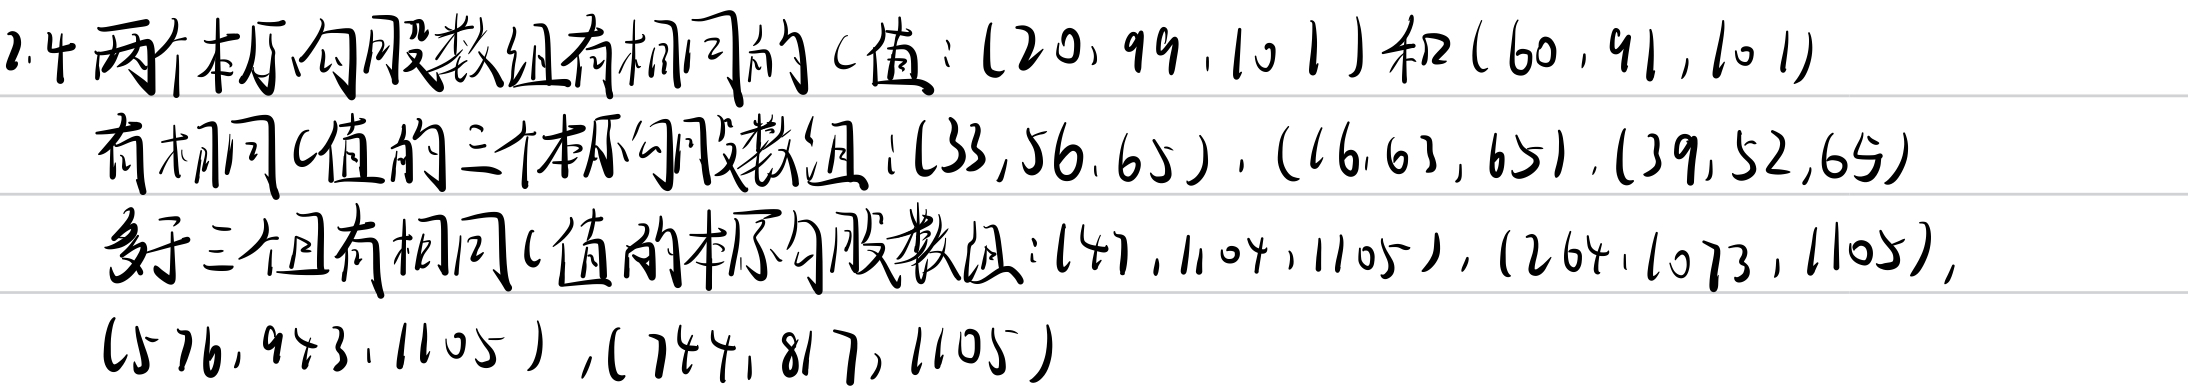 2.4 两个本原勾股数组有相同的c值:(20,99,101)和(60,91,101)
有相同c值的三个本原勾股数组:(33,56,65),(16,63,65),(39,52,65)
多于三个且有相同c值的本原勾股数组:(47,1104,1105),(264,1073,1105),
(576,943,1105),(744,817,1105)